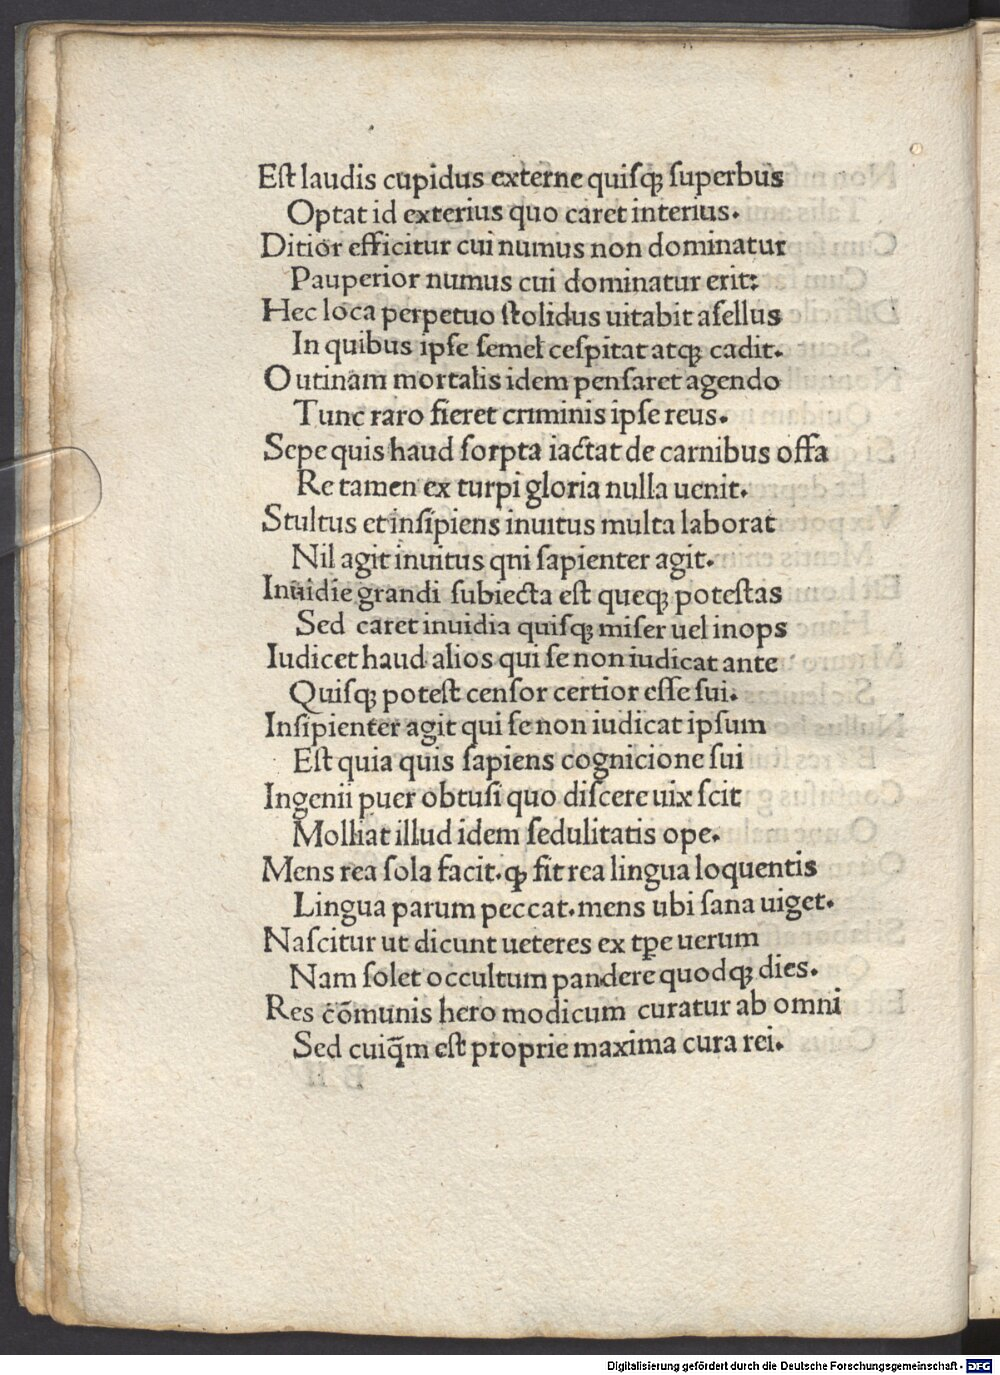 Eſt laudis cupidus externe quiſqꝫ ſuperbus
Optat id exterius quo caret interius.
Ditior efficitur cui numus non dominatur
Pauperior numus cui dominatur erit:
Hec loca perpetuo ſtolidus uitabit aſellus
In quibus ipſe ſemel ceſpitat atqꝫ cadit.
O utinam mortalis idem penſaret agendo
Tunc raro fieret criminis ipſe reus.
Sepe quis haud ſorpta iactat de carnibus offa
Re tamen ex turpi gloria nulla uenit.
Stultus et inſipiens inuitus multa laborat
Nil agit inuitus qni ſapienter agit.
Inuidie grandi ſubiecta eſt queqꝫ poteſtas
Sed caret inuidia quiſqꝫ miſer uel inops
Iudicet haud alios qui ſe non iudicat ante
Quiſqꝫ poteſt cenſor certior eſſe ſui.
Inſipienter agit qui ſe non iudicat ipſum
Eſt quia quis ſapiens cognicione ſui
Ingenii puer obtuſi quo diſcere uix ſcit
Molliat illud idem ſedulitatis ope.
Mens rea ſola facit. ꝙ fit rea lingua loquentis
Lingua parum peccat. mens ubi ſana uiget.
Naſcitur ut dicunt ueteres ex tꝑe uerum
Nam ſolet occultum pandere quodqꝫ dies.
Res cōmunis hero modicum curatur ab omni
Sed cuiq̄m eſt proprie maxima cura rei.
Digitalisierung gefördert durch die Deutsche Forschungsgemeinschaft - DFG